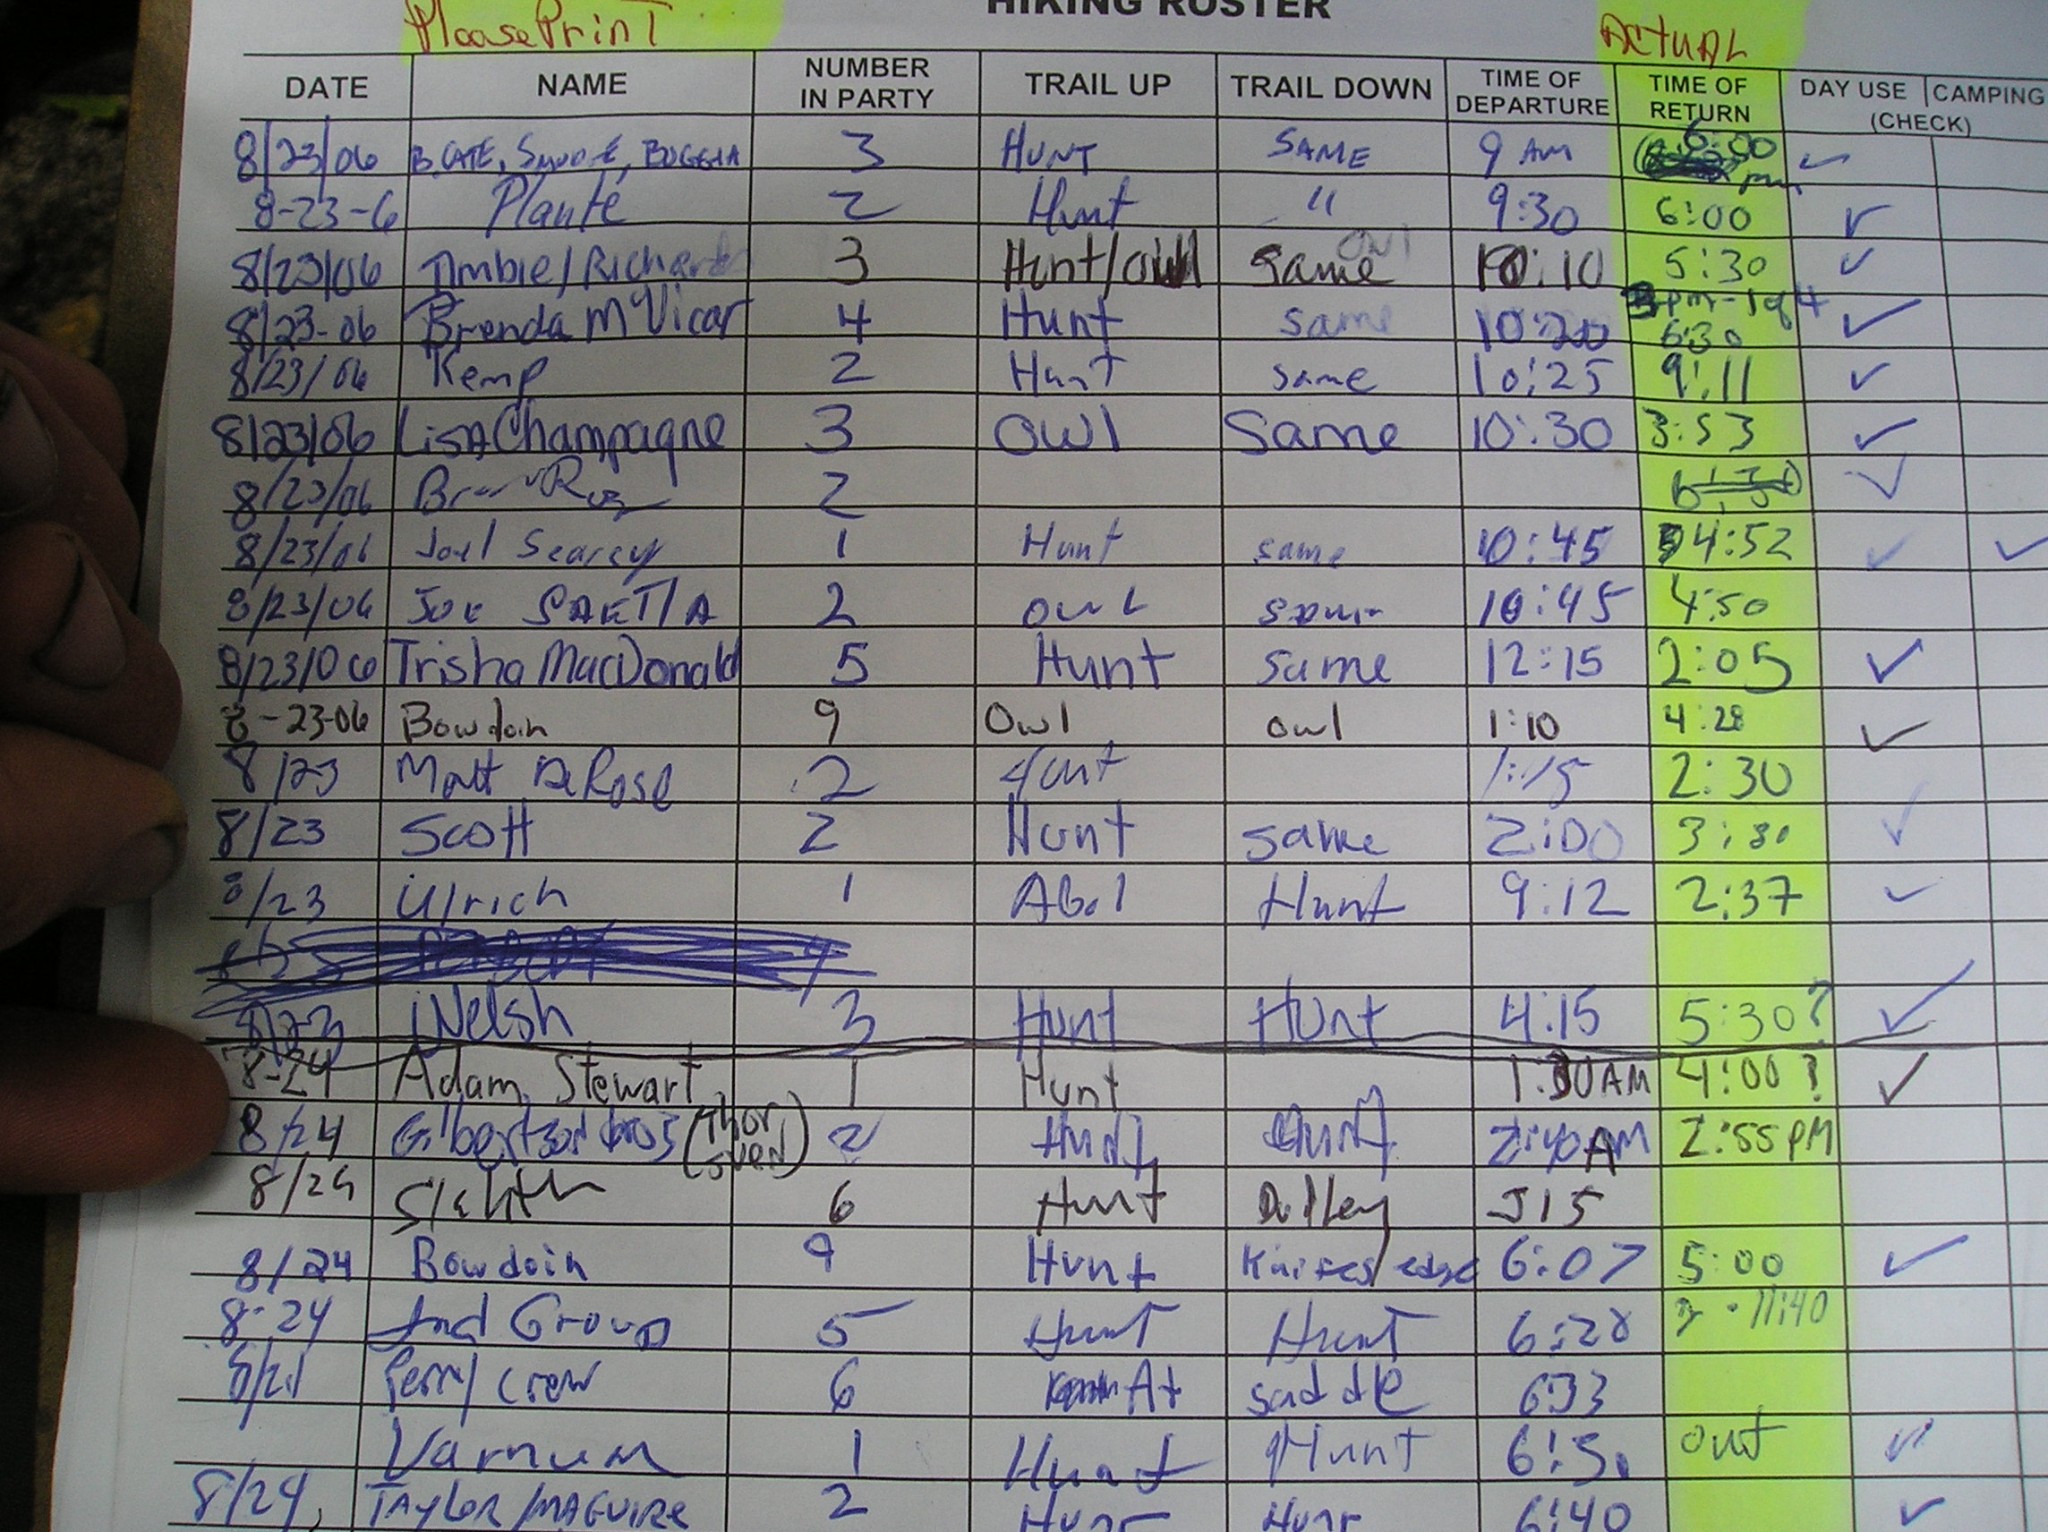 HIKING ROSTER
Please Print ACTUAL
DATE NAME NUMBER IN PARTY TRAIL UP TRAIL DOWN TIME OF DEPARTURE TIME OF RETURN DAY USE CAMPING (CHECK)
8/23/06 3 HUNT SAME 9 AM 6:00 pm ✓
8-23-6 Planté 2 Hunt " 9:30 6:00 ✓
8/23/06 3 Hunt/Owl Same Owl 10:10 5:30 ✓
8/23-06 Brenda McVicar 4 Hunt same 10:20 3pm-1of4 6:30 ✓
8/23/06 Kemp 2 Hunt same 10:25 9:11 ✓
8/23/06 Lisa Champagne 3 Owl Same 10:30 3:53 ✓
8/23/06 2 ✓
8/23/06 Joel Searcy 1 Hunt same 10:45 4:52 ✓ ✓
8/23/06 JOE 2 OWL 10:45 4:50
8/23/06 Trisha MacDonald 5 Hunt same 12:15 2:05 ✓
8-23-06 Bowdoin 9 Owl owl 1:10 4:28 ✓
8/23 Matt DeRose 2 Hunt 1:15 2:30
8/23 Scott 2 Hunt same 2:00 3:30 ✓
8/23 Ulrich 1 Abol Hunt 9:12 2:37 ✓
8/23 Welsh 3 Hunt Hunt 4:15 5:30? ✓
8-24 Adam Stewart 1 Hunt 1:30AM 4:00? ✓
8/24 Gilbertson bros (Thor 2 Hunt Hunt 2:40 AM 2:55PM
8/24 6 Hunt Dudley 515
8/24 Bowdoin 9 Hunt Knifes edge 6:07 5:00 ✓
8-24 And Group 5 Hunt Hunt 6:28 11:40
Perry crew 6 At saddle 633
Varnum 1 Hunt Hunt out ✓
8/24 TAYLOR/MAGUIRE 2 Hunt Hunt 6:40 ✓